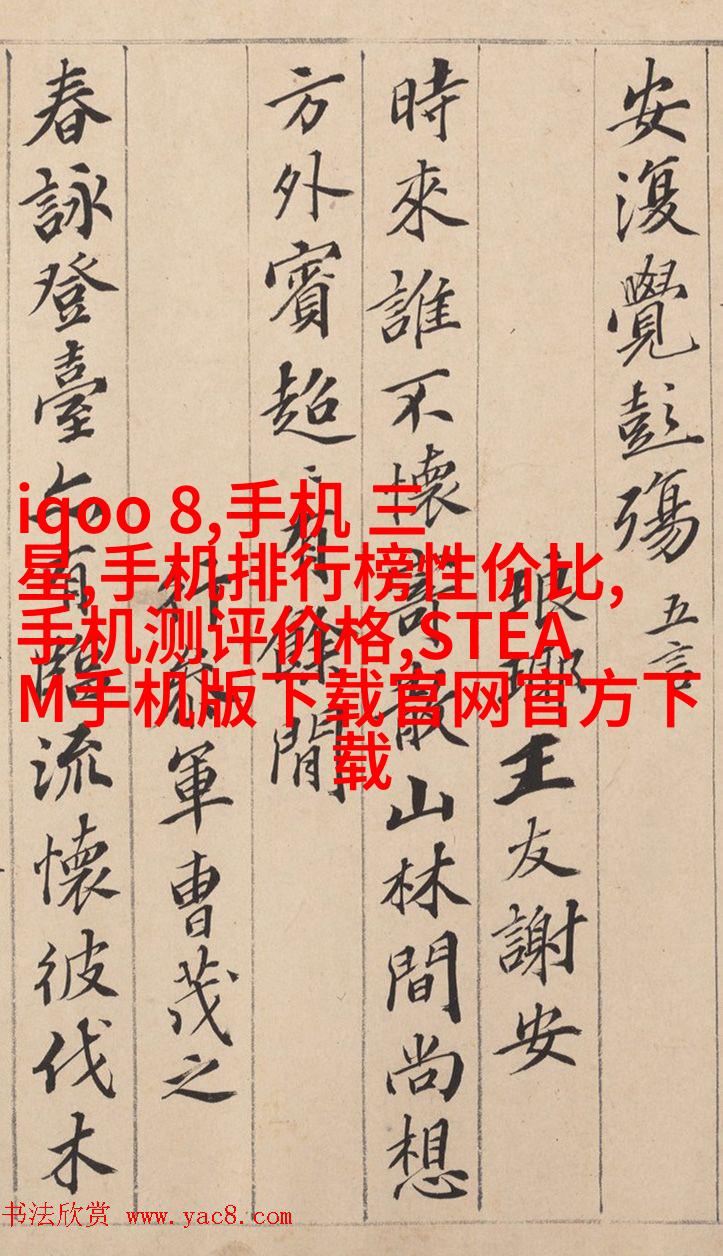 安復覺彭殤 五言
琅琊王友謝安
時來誰不懷寄散山林間尚想
方外賓超〻有餘閒
行參軍曹茂之
春詠登臺亦有臨流懷彼伐木
iqoo 8,手机 三
星,手机排行榜性价比,
手机测评价格,STEA
M手机版下载官网官方下
载
书法欣赏 www.yac8.com